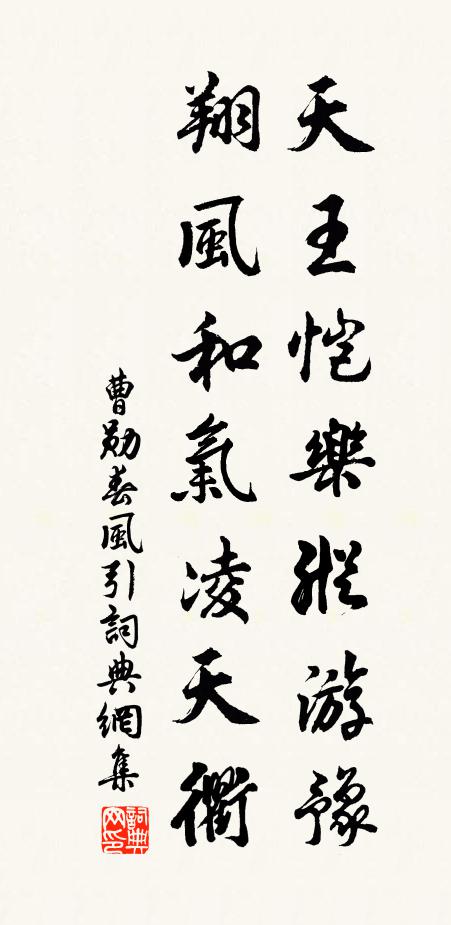 天王恺樂縱游豫
翔風和氣凌天衢
曹勛春風引詞典網集
詞典网印